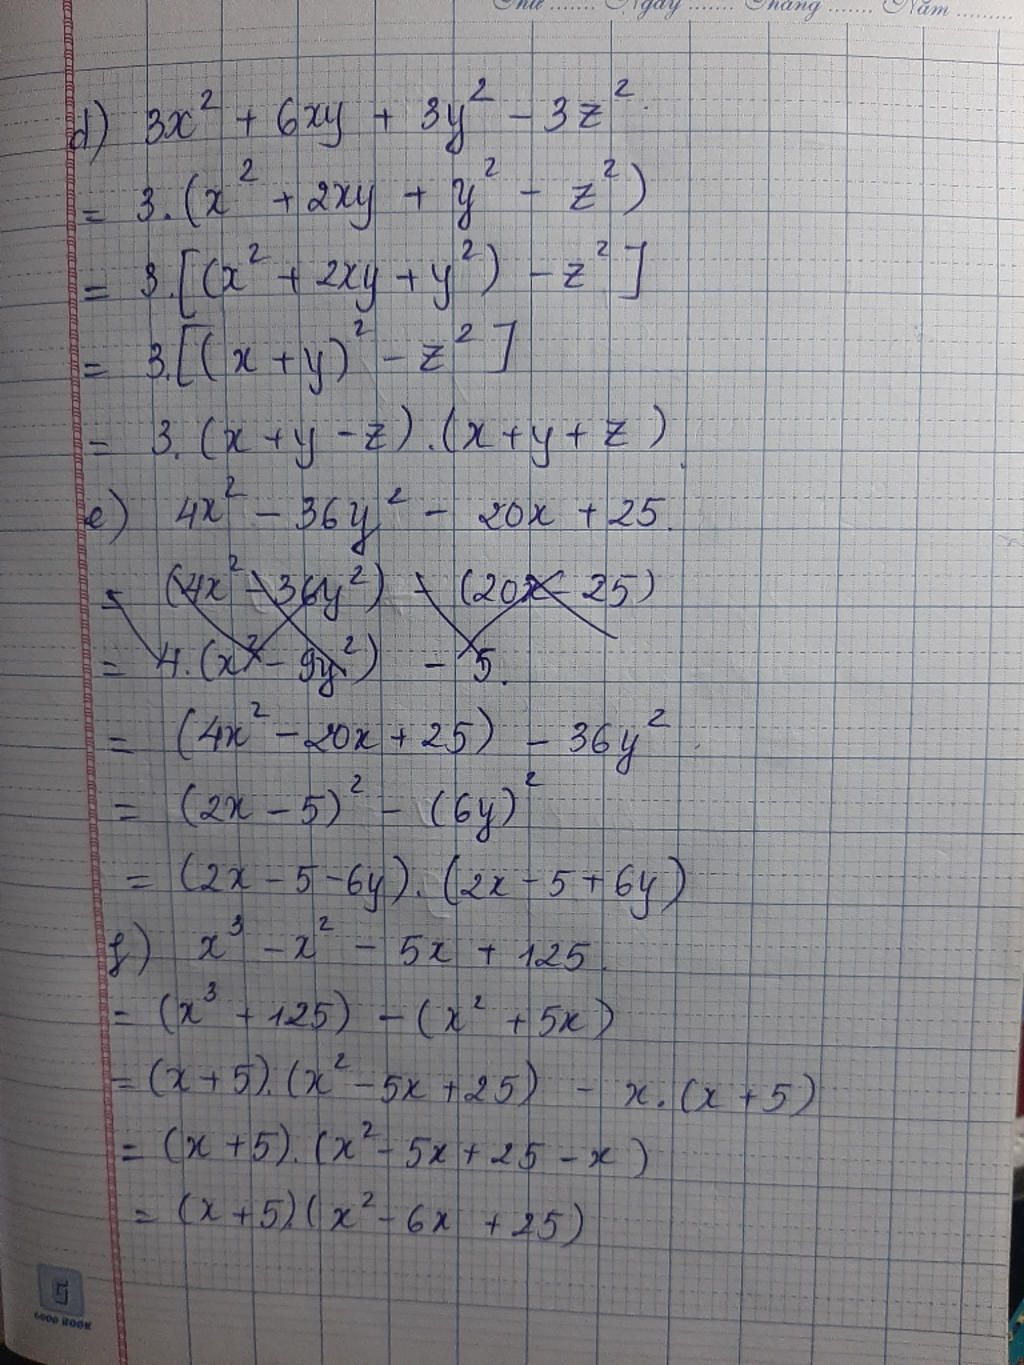 Thứ ....... Ngày ....... Tháng ....... Năm .........
d) 3x² + 6xy + 3y² - 3z².
= 3.(x² + 2xy + y² - z²)
= 3.[(x² + 2xy + y²) - z²]
= 3.[(x + y)² - z²]
= 3.(x + y - z).(x + y + z).
e) 4x² - 36y² - 20x + 25.
= (4x² - 36y²) - (20x - 25)
= 4.(x² - 9y²) - 5.
= (4x² - 20x + 25) - 36y².
= (2x - 5)² - (6y)²
= (2x - 5 - 6y).(2x - 5 + 6y)
f) x³ - x² - 5x + 125.
= (x³ + 125) - (x² + 5x)
= (x + 5).(x² - 5x + 25) - x.(x + 5)
= (x + 5).(x² - 5x + 25 - x)
= (x + 5)(x² - 6x + 25)
GOOD BOOK